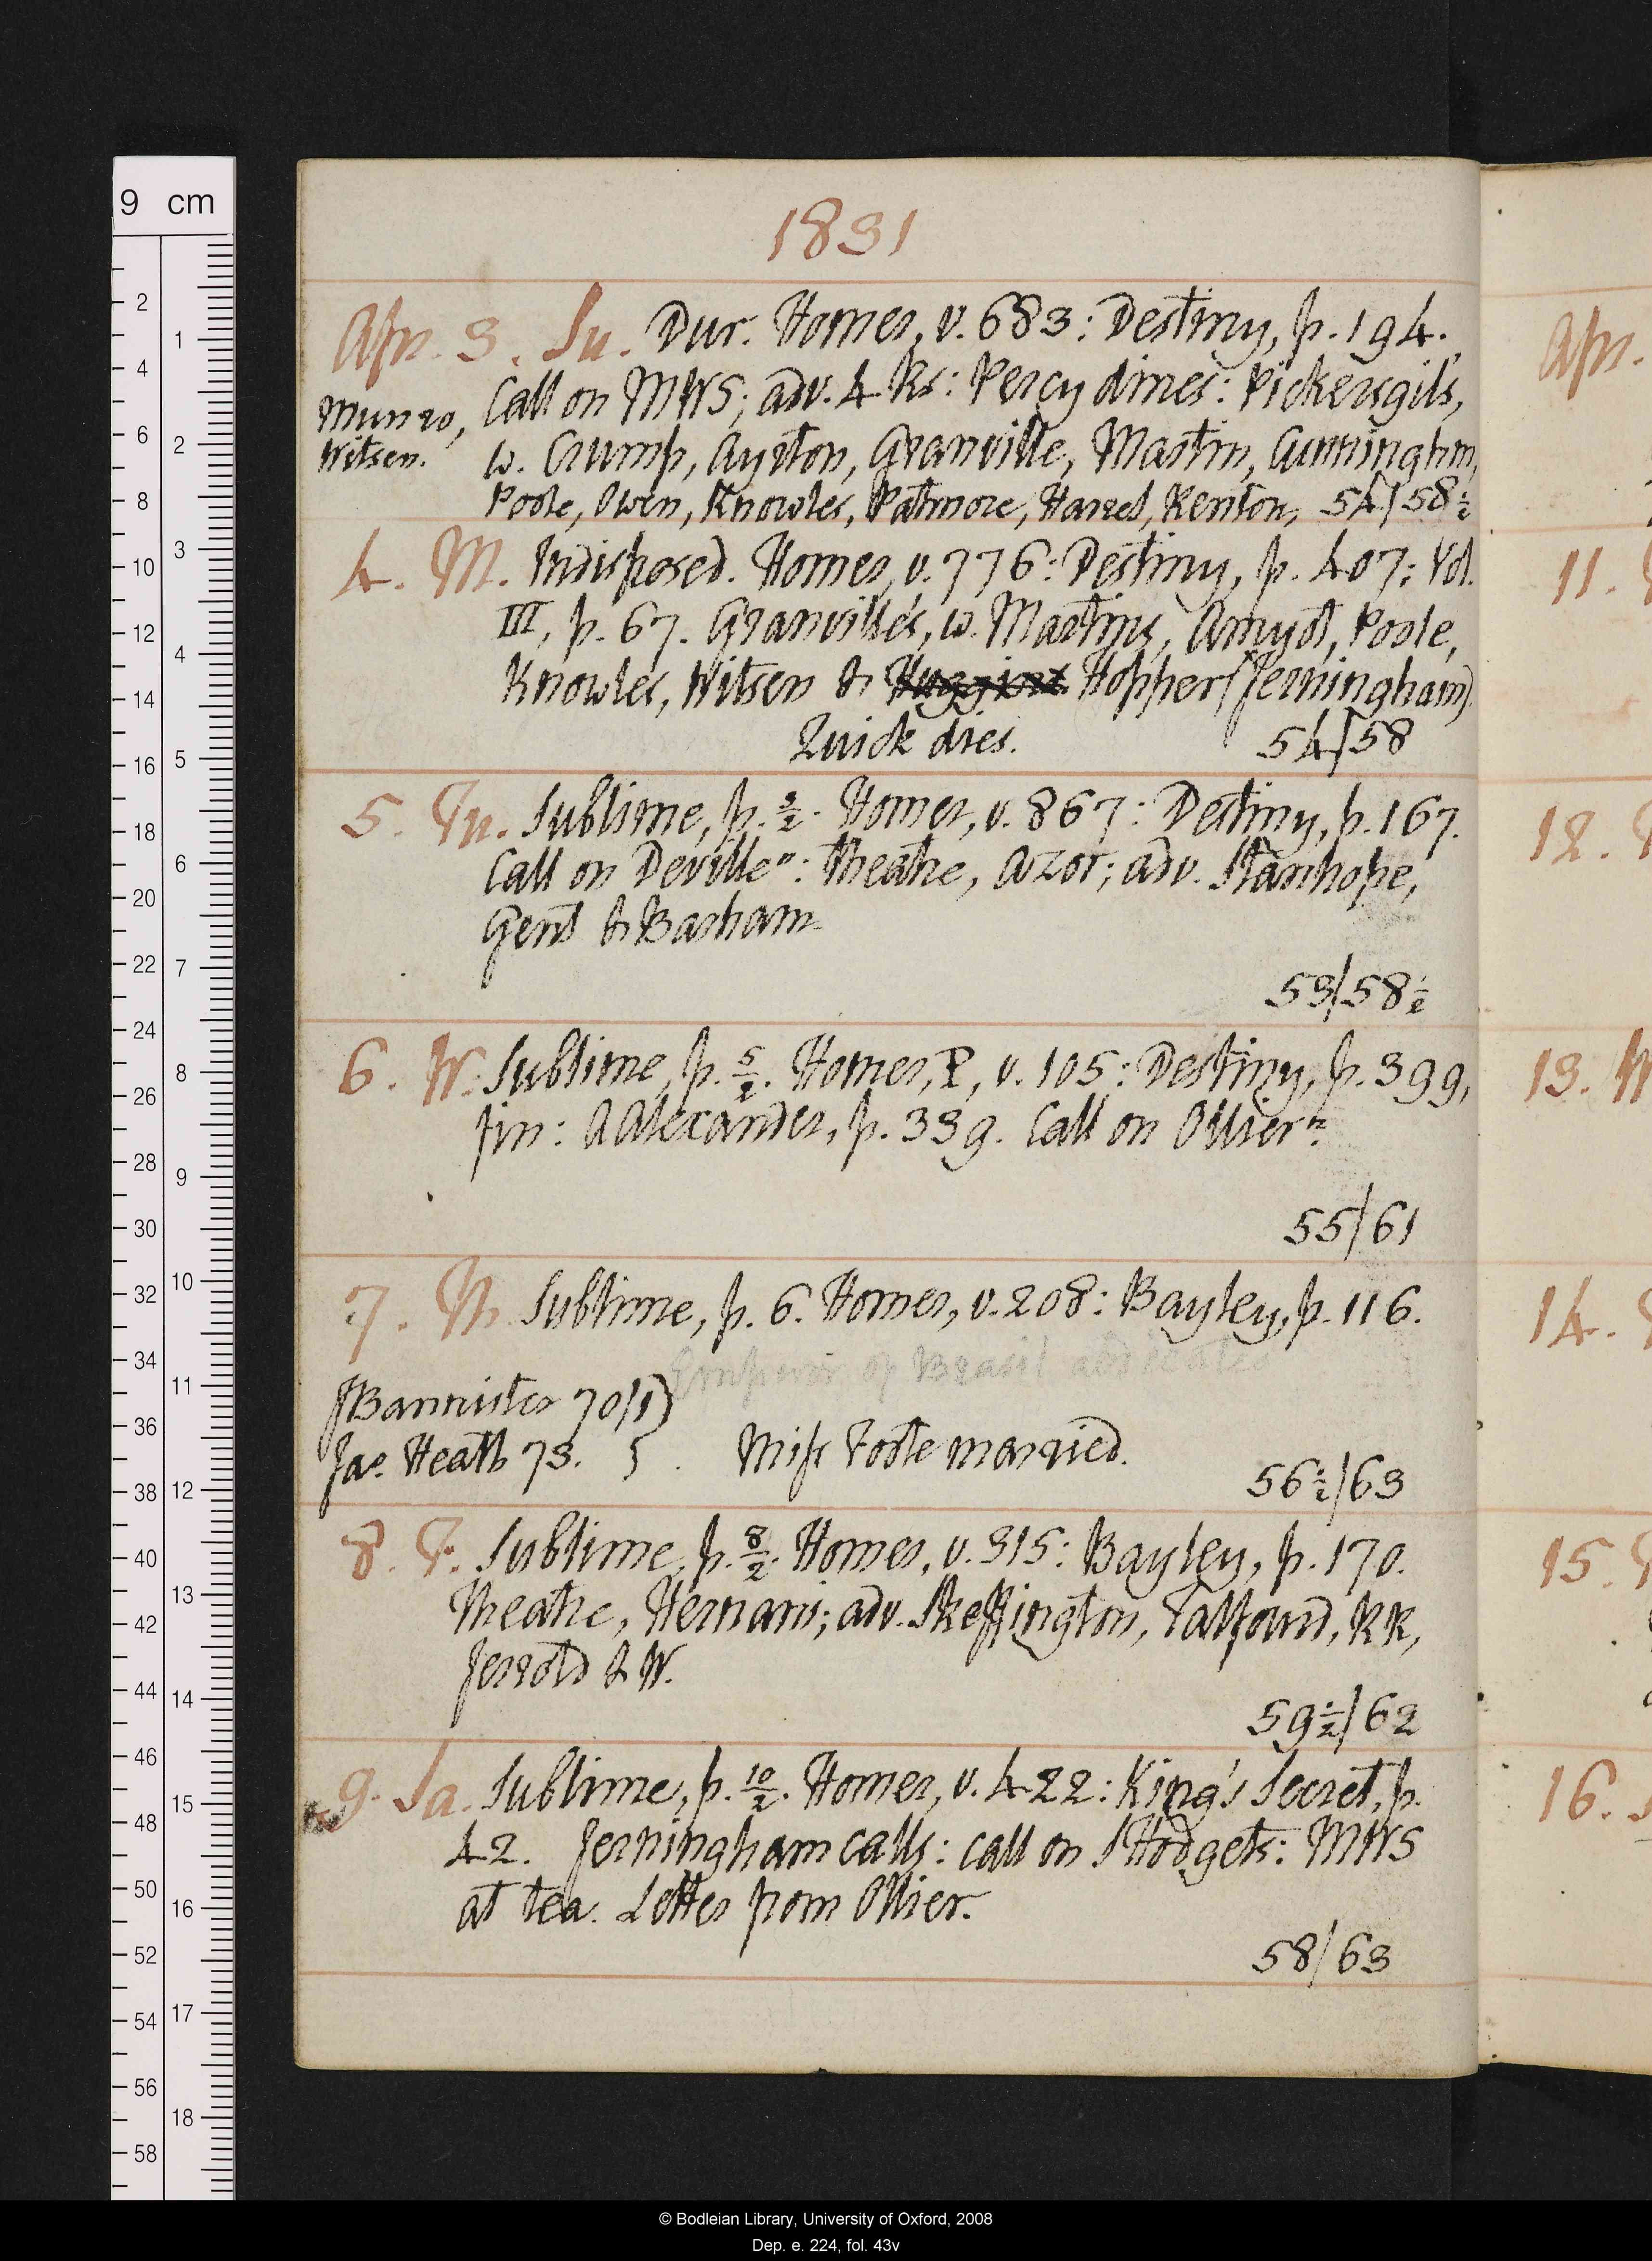 9 cm
1831
Apr. 3. Su. Dur. Homer, v. 683: Destiny, p. 194.
Call on MWS; adv. 4 Rs: Percy dines: Pickersgils,
Munro,
Witsen.
w. Crump, Ayrton, Granville, Martin, Cunninghm,
Poole, Owen, Knowles, Patmore, Harred, Kenton, 54/58½
4. M. Indisposed. Homer, v. 776: Destiny, p. 407: Vol.
III, p. 67. Granville's, w. Martins, Amyot, Poole,
Knowles, Witsen & Huggins Hopper (Jerningham)
Quick dies. 54/58
5. Tu. Sublime, p. 3/2. Homer, v. 867: Destiny, p. 167.
Call on Deville n: theatre, Azor; adv. Stanhope,
Gent & Barham
53/58½
6. W. Sublime, p. 5/2. Homer, P, v. 105: Destiny, p. 399,
fin: Alexander, p. 339. Call on Ollier n.
55/61
7. Th Sublime, p. 6. Homer, v. 208: Bayley, p. 116.
Emperor of Brasil abdicates
JBannister 70/1}
Jas. Heath 73. } Miss Foote married.
56½/63
8. F. Sublime, p. 8/2. Homer, v. 315: Bayley, p. 170.
Theatre, Hernani; adv. Skeffington, Talfourd, KK,
Jerrold & W.
59½/62
9. Sa. Sublime, p. 10/2. Homer, v. 422: King's Secret, p.
42. Jerningham calls: call on SHodgets: MWS
at tea. Letter from Ollier.
58/63
Apr.
11.
12.
13. W
14.
15.
16.
2 4 6 8 10 12 14 16 18 20 22 24 26 28 30 32 34 36 38 40 42 44 46 48 50 52 54 56 58
1 2 3 4 5 6 7 8 9 10 11 12 13 14 15 16 17 18
© Bodleian Library, University of Oxford, 2008
Dep. e. 224, fol. 43v